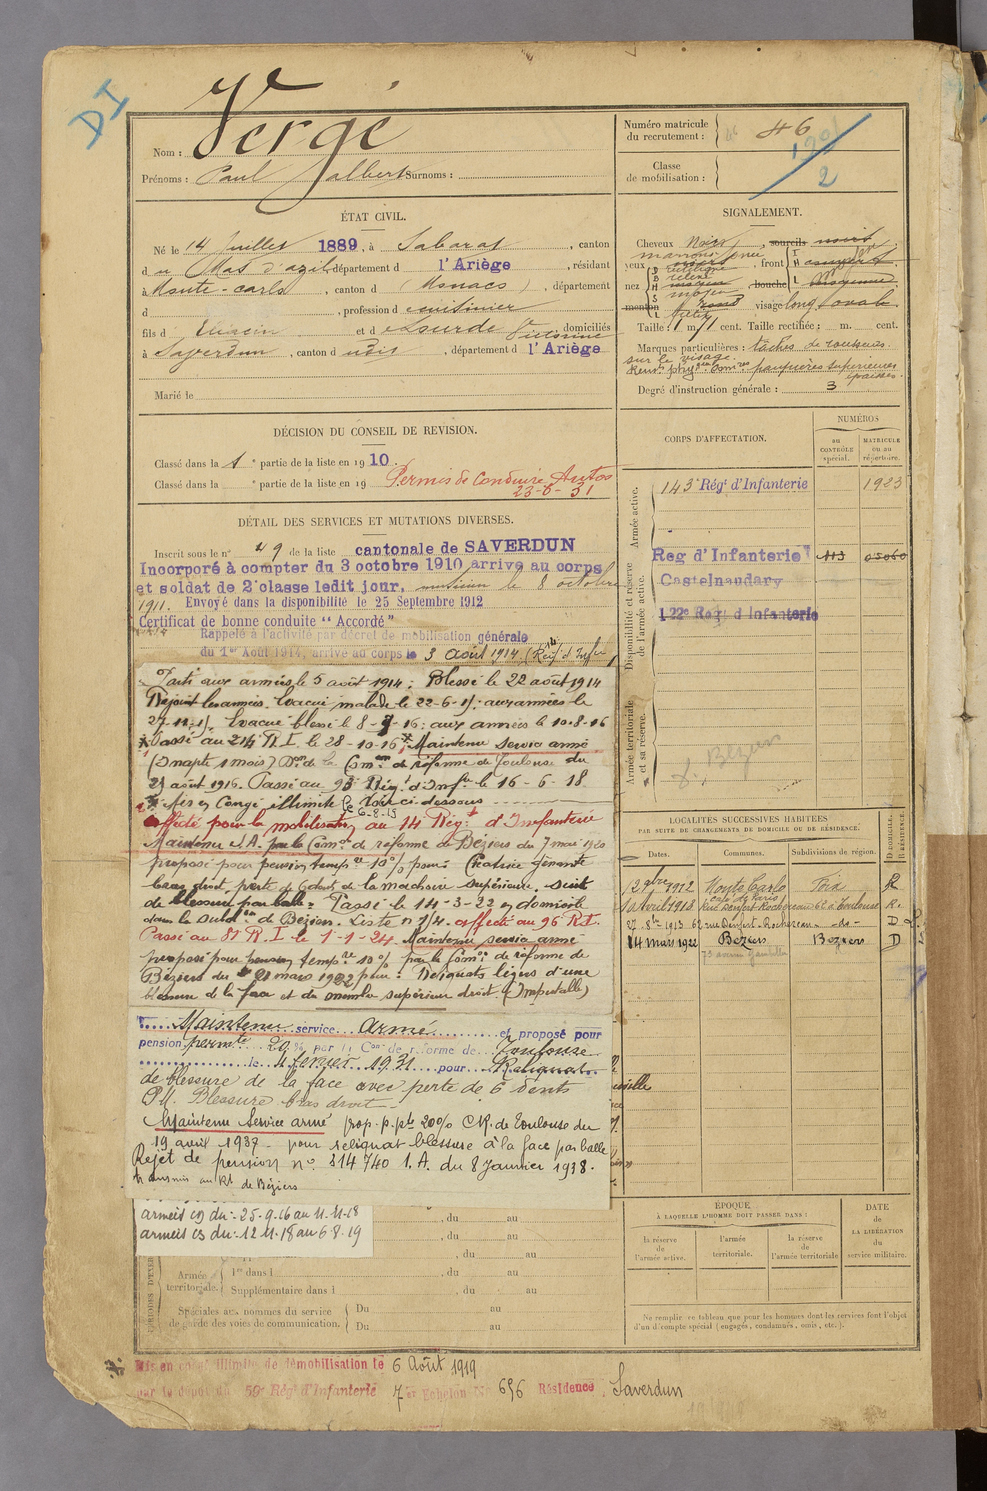 DI
Nom : Vergé
Prénoms : Paul Jalbert Surnoms :
Numéro matricule du recrutement : 46
Classe de mobilisation :
2
ÉTAT CIVIL.
Né le 14 Juillet 1889, à Sabarat, canton
du Mas d'azil département d l'Ariège, résidant
à Monte-carlo, canton d (Monaco), département
d , profession d cuisinier
fils d et d domiciliés
à Saverdun, canton d udit, département d l'Ariège
Marié le
SIGNALEMENT.
Cheveux Noirs, sourcils noirs
yeux , front
nez , bouche
menton rond visage long ovale
Taille : 1 m 71 cent. Taille rectifiée : m. cent.
Marques particulières : tâches de rousseurs
sur le visage.
paupières supérieures
épaisses
Degré d'instruction générale : 3
DÉCISION DU CONSEIL DE REVISION.
Classé dans la 1e partie de la liste en 1910.
Classé dans la e partie de la liste en 19
Permis de Conduire Autos
23-6-31
DÉTAIL DES SERVICES ET MUTATIONS DIVERSES.
Inscrit sous le n° 49 de la liste cantonale de SAVERDUN
Incorporé à compter du 3 octobre 1910 arrivé au corps
et soldat de 2e classe ledit jour, musicien le 8 octobre
1911. Envoyé dans la disponibilité le 25 Septembre 1912
Certificat de bonne conduite "Accordé"
Rappelé à l'activité par décret de mobilisation générale
du 1er Août 1914, arrivé au corps le 3 août 1914
Parti aux armées le 5 août 1914 ; Blessé le 22 août 1914
Rejoint les armées. Evacué malade le 22-6-15 ; aux armées le
27-11-15 Evacué blessé le 8-7-16 ; aux armées le 10-8-16
Passé au 214 R.I. le 28-10-16 ; Maintenu service armé
(Inapte 1 mois) Don de la Comon de réforme de Toulouse du
29 août 1916. Passé au Régt d'Inftie le 16-6-18
Mis en Congé illimité le 6-8-19 Voir ci-dessous
Affecté pour la mobilisation au 14 Régt d'Infanterie
Maintenu S.A. par la Comon de réforme de Béziers du 7 mai 1920
proposé pour pension tempre 10% pour : Cicatrice gênante
bras droit, perte de 6 dents de la machoire supérieure, suite
de blessure par balle. Passé le 14-3-22 en domicile
dans la subdon de Béziers. Liste n° 1/4. affecté au 96 R.I.
Passé au 81 R.I. le 1-1-24. Maintenu service armé
proposé pour pension tempre 10% par la Comon de réforme de
Béziers du 21 mars 1922 pour : Reliquats légers d'une
blessure de la face et du membre supérieur droit.
Maintenu service armé et proposé pour
pension permte 20% par la Con de réforme de Toulouse
le 4 février 1931 pour Reliquat
de blessure de la face avec perte de 6 dents
Blessure bras droit
Maintenu Service armé prop. p. pte 20% C.R. de Toulouse du
19 avril 1937 - pour reliquat blessure à la face par balle
Rejet de pension n° 814740 I.A. du 8 Janvier 1938.
transmis au Rt de Béziers
armées cd du : 25-9-16 au 11.11.18
armées cs du : 12.11.18 au 6.8.19
CORPS D'AFFECTATION.
NUMÉROS
AU CONTRÔLE spécial.
MATRICULE ou au répertoire.
Armée active.
143e Régt d'Infanterie 1923
Disponibilité et réserve de l'armée active.
Reg d'Infanterie
Castelnaudary
122e Régt d'Infanterie
Armée territoriale et sa réserve.
Béziers
LOCALITÉS SUCCESSIVES HABITÉES
PAR SUITE DE CHANGEMENTS DE DOMICILE OU DE RÉSIDENCE.
Dates. Communes. Subdivisions de région. D DOMICILE. R RÉSIDENCE.
1912 Monte Carlo Foix R
Avril 1913 Toulouse R.
1913 62 rue Denfert-Rochereau -do- D
14 mars 1922 Béziers Béziers D
ÉPOQUE
À LAQUELLE L'HOMME DOIT PASSER DANS :
la réserve de l'armée active.
l'armée territoriale.
la réserve de l'armée territoriale
DATE de LA LIBÉRATION du service militaire.
, du au
, du au
, du au
Armée territoriale.
1re dans l , du au
Supplémentaire dans l , du au
Spéciales aux hommes du service de garde des voies de communication.
Du au
Du au
Ne remplir ce tableau que pour les hommes dont les services font l'objet
d'un décompte spécial (engagés, condamnés, omis, etc.).
Mis en congé illimité de démobilisation le 6 Août 1919
par le dépôt du 59e Régt d'Infanterie 7e Echelon N° 696 Résidence : Saverdun